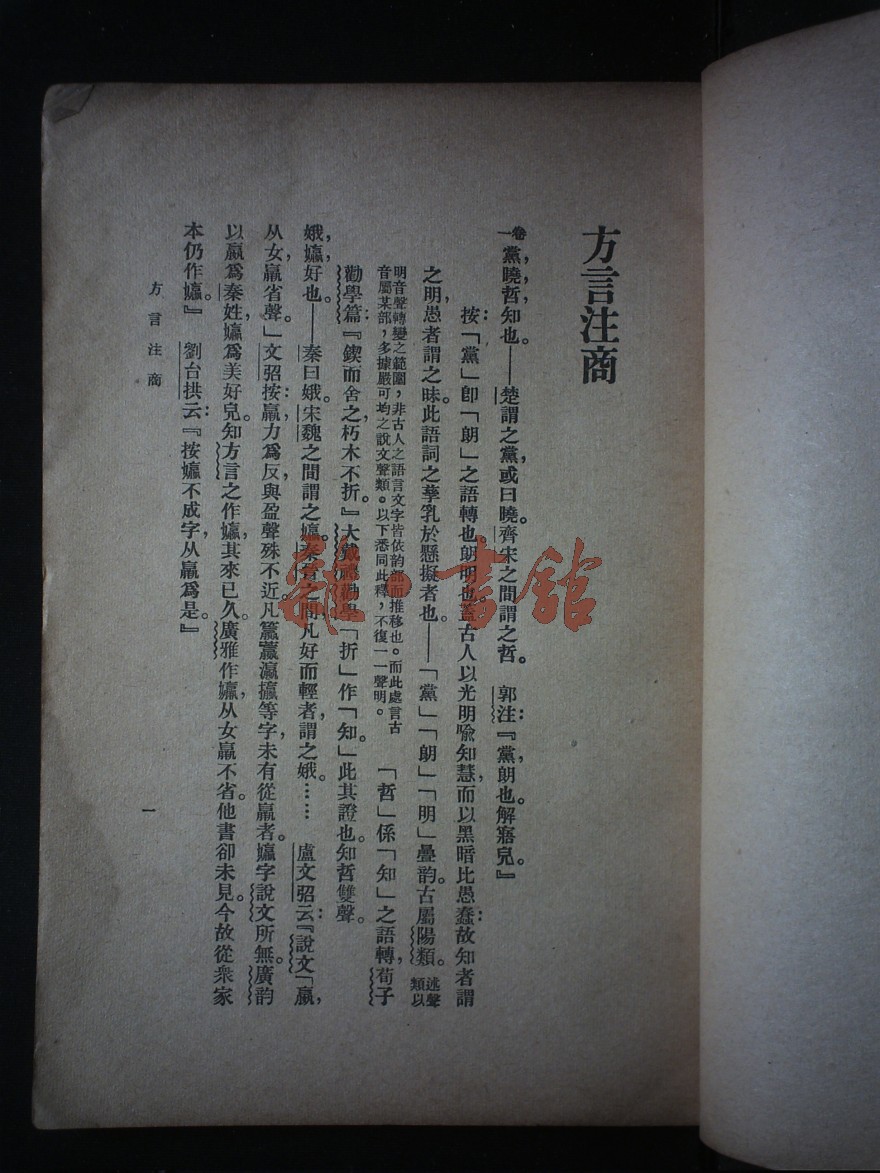 方言注商
卷一 黨，曉，哲，知也。——楚謂之黨，或曰曉。齊宋之間謂之哲。 郭注：『黨朗也，解寤皃。』
按：「黨」卽「朗」之語轉也。朗，明也。蓋古人以光明喩知慧，而以黑暗比愚蠢：故知者謂
之明，愚者謂之昧。此語詞之孳乳於懸擬者也。——「黨」「朗」「明」疊韵。古屬陽類。述聲類以
明音聲轉變之範圍，非古人之語言文字皆依韵部而推移也。而此處言古
音屬某部，多據嚴可均之說文聲類。以下悉同此釋，不復一一聲明。 「哲」係「知」之語轉，荀子
勸學篇：『鍥而舍之，朽木不折。』大戴禮勸學「折」作「知。」此其證也。知哲雙聲。
娥，㜲，好也——秦曰娥，宋魏之間謂之㜲。秦晉之間，凡好而輕者，謂之娥。…… 盧文弨云：『說文「嬴，
从女，羸省聲。」文弨按：羸，力爲反，與盈聲殊不近。凡籯瀛攍等字，未有從羸者。㜲字說文所無。廣韵
以嬴爲秦姓，㜲爲美好皃。知方言之作㜲，其來已久。廣雅作㜲，从女羸不省。他書卻未見。今故從衆家
本仍作㜲。』 劉台拱云：『按㜲不成字，从羸爲是。』
方言注商
一
雜·書館